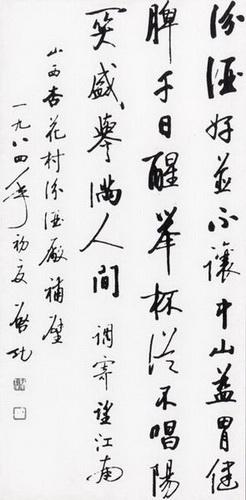 汾酒好並不讓中山益胃健
脾千日醒舉杯從不唱陽
關盛譽滿人間 調寄望江南
山西杏花村汾酒廠補壁
一九八四年初夏 啟功